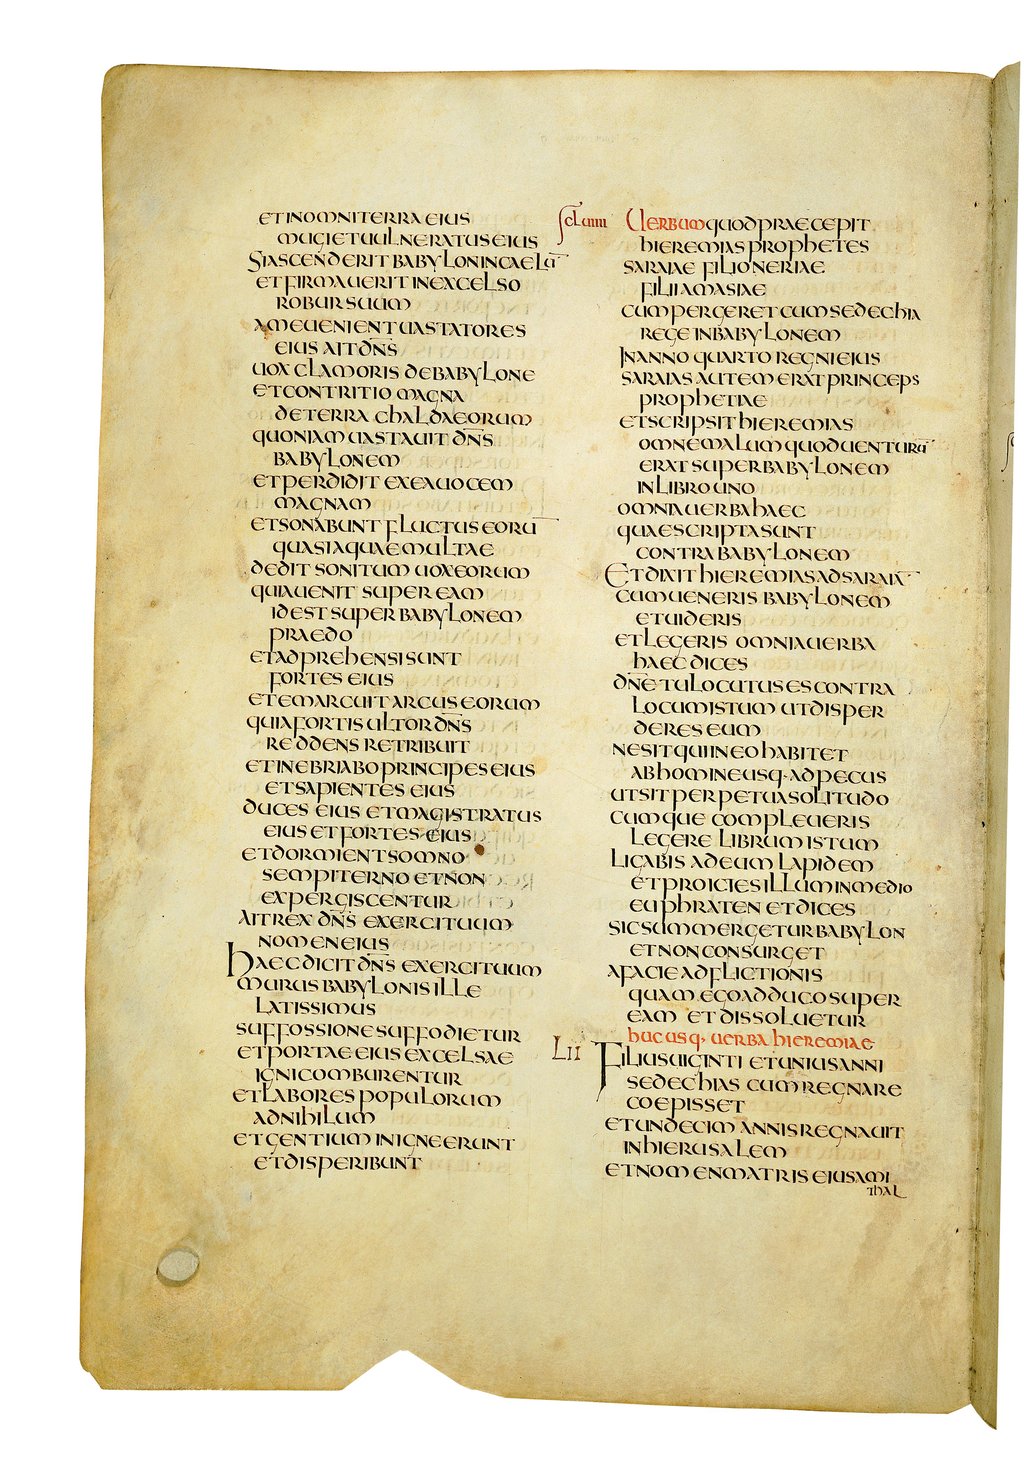 ETINOMNITERRA EIUS
MUGIET UULNERATUS EIUS
SIASCENDERIT BABYLON INCAELŪ
ETFIRMAUERIT INEXCELSO
ROBUR SUUM
AMEUENIENT UASTATORES
EIUS AIT DN̄S
UOX CLAMORIS DEBABYLONE
ETCONTRITIO MAGNA
DETERRA CHALDAEORUM
QUONIAM UASTAUIT DN̄S
BABYLONEM
ETPERDIDIT EXEAUOCEM
MAGNAM
ETSONABUNT FLUCTUS EORŪ
QUASIAQUAE MULTAE
DEDIT SONITUM UOXEORUM
QUIAUENIT SUPER EAM
IDEST SUPER BABYLONEM
PRAEDO
ETADPREHENSI SUNT
FORTES EIUS
ETEMARCUIT ARCUS EORUM
QUIAFORTIS ULTOR DN̄S
REDDENS RETRIBUIT
ETINEBRIABO PRINCIPES EIUS
ETSAPIENTES EIUS
DUCES EIUS ETMAGISTRATUS
EIUS ETFORTES EIUS
ETDORMIENT SOMNO
SEMPITERNO ETNON
EXPERGISCENTUR
AIT REX DN̄S EXERCITUUM
NOMEN EIUS
HAEC DICIT DN̄S EXERCITUUM
MURUS BABYLONIS ILLE
LATISSIMUS
SUFFOSSIONE SUFFODIETUR
ETPORTAE EIUS EXCELSAE
IGNI COMBURENTUR
ETLABORES POPULORUM
ADNIHILUM
ETGENTIUM INIGNE ERUNT
ETDISPERIBUNT
UERBUM QUOD PRAECEPIT
HIEREMIAS PROPHETES
SARAIAE FILIO NERIAE
FILII AMASIAE
CUMPERGERET CUM SEDECHIA
REGE INBABYLONEM
INANNO QUARTO REGNI EIUS
SARAIAS AUTEM ERAT PRINCEPS
PROPHETIAE
ETSCRIPSIT HIEREMIAS
OMNEMALUM QUOD UENTURŪ
ERAT SUPER BABYLONEM
INLIBRO UNO
OMNIAUERBA HAEC
QUAESCRIPTA SUNT
CONTRA BABYLONEM
ETDIXIT HIEREMIAS AD SARAIĀ
CUMUENERIS BABYLONEM
ETUIDERIS
ETLEGERIS OMNIA UERBA
HAEC DICES
DN̄E TU LOCUTUS ES CONTRA
LOCUM ISTUM UTDISPER
DERES EUM
NESIT QUI INEO HABITET
ABHOMINE USQ· AD PECUS
UTSIT PERPETUA SOLITUDO
CUMQUE COMPLEUERIS
LEGERE LIBRUM ISTUM
LIGABIS ADEUM LAPIDEM
ETPROICIES ILLUM INMEDIO
EUPHRATEN ETDICES
SIC SUMMERGETUR BABYLON
ETNON CONSURGET
AFACIE ADFLICTIONIS
QUAM EGO ADDUCO SUPER
EAM ETDISSOLUETUR
HUCUSQ· UERBA HIEREMIAE
LII FILIUS UIGINTI ETUNIUS ANNI
SEDECHIAS CUM REGNARE
COEPISSET
ETUNDECIM ANNIS REGNAUIT
INHIERUSALEM
ETNOMEN MATRIS EIUS AMI
THAL